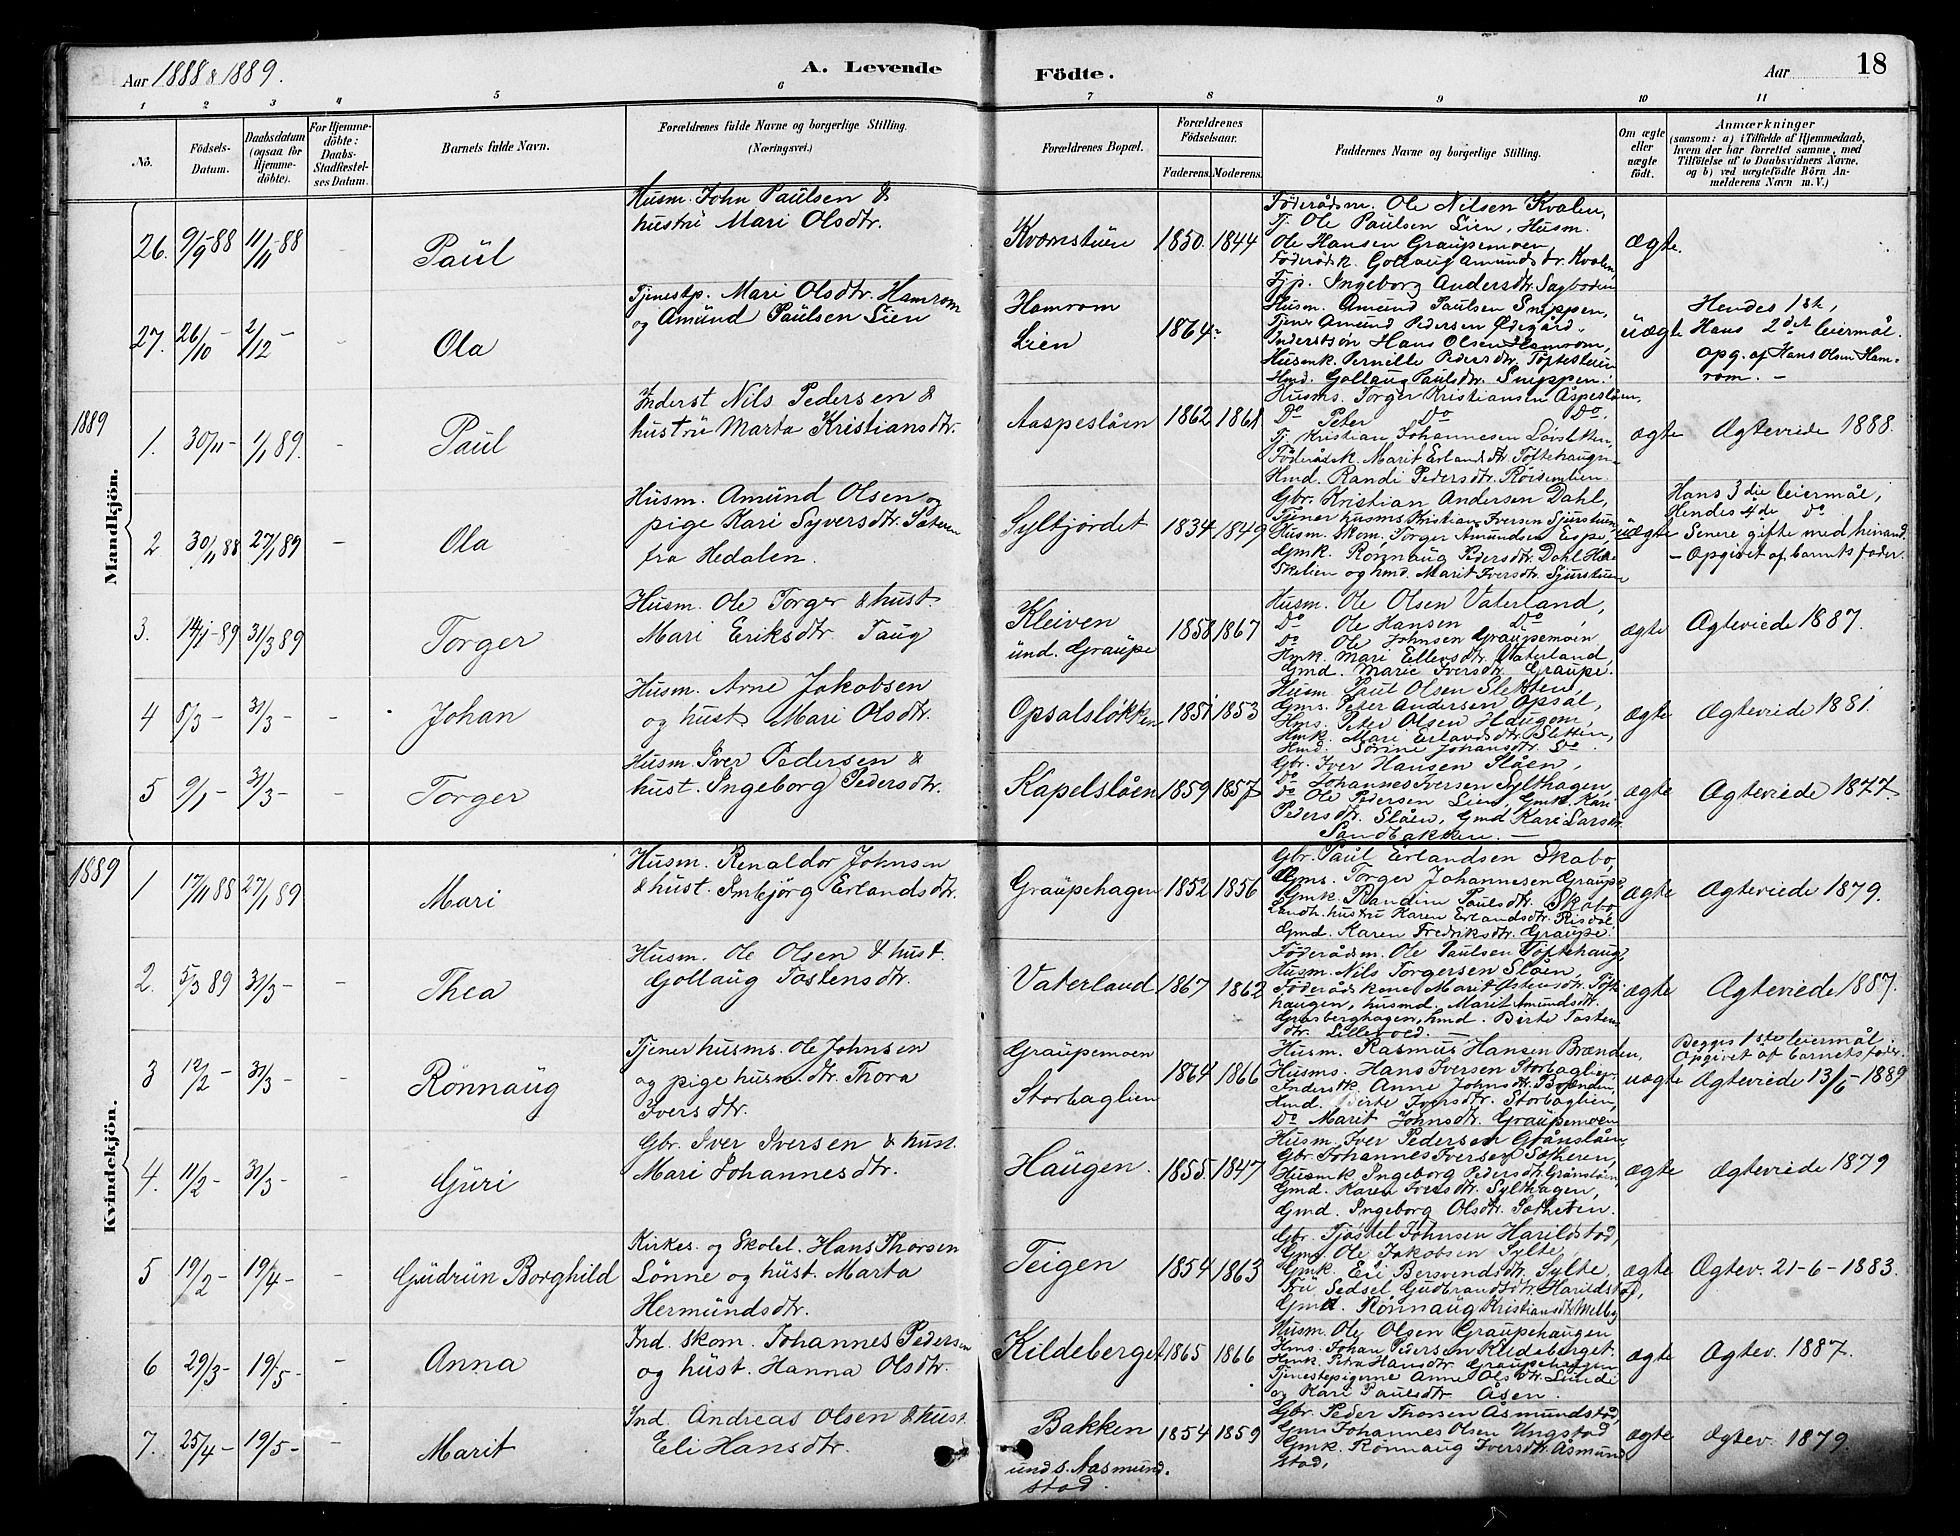 Aar 1888 & 1889.
A. Levende Födte.
Aar 18
1 2 3 4 5 6 7 8 9 10 11
No.
Födsels-Datum.
Daabsdatum (ogsaa for Hjemme-döbte).
For Hjemme-döbte: Daabs-Stadfæstel-ses Datum.
Barnets fulde Navn.
Forældrenes fulde Navne og borgerlige Stilling.
(Næringsvei.)
Forældrenes Bopæl.
Forældrenes Födselsaar.
Faderens. Moderens.
Faddernes Navne og borgerlige Stilling.
Om ægte eller uægte födt.
Anmærkninger
(saasom: a) i Tilfælde af Hjemmedaab,
hvem der har forrettet samme, med
Tilföielse af to Daabsvidners Navne,
og b) ved uægtefödte Börn An-
melderens Navn m. V.)
Mandkjön.
26. 9/9-88 11/11-88 - Paul
Husm. John Paulsen &
hustru Mari Olsdtr.
Kværnstuen 1850. 1844
Föderådsm. Ole Nilsen Kvalen,
Tj. Ole Paulsen Lien, Husm.
Ole Hansen Graupemoen,
Föderådsk. Gollaug Amundsdtr. Kvalen,
Tjp. Ingeborg Andersdtr. Sagboden
ægte.
27. 26/10- 2/12- - Ola
Tjenestp. Mari Olsdtr. Hamrom
og Amund Paulsen Lien
Hamrom
Lien
1864-
Husm. Amund Paulsen Snippen,
Tjener Amund Pedersen Ødegård.
Inderstsön Hans Olsen Hamrom,
Husmk. Pernille Pedersdtr. Toftestuen
Hmd. Gollaug Paulsdtr. Snippen.
uægte
Hendes 1st,
Hans 2det leiermål.
Opg. af Hans Olsen Ham-
rom. -
1889
1. 30/11- 1/1 89. - Paul
Inderst Nils Pedersen &
hustru Marta Kristiansdtr.
Aaspeslåen 1862 1861
Husms. Torger Kristiansen Åspeslåen,
Do Peter Do Do.
Tj. Kristian Johannesen
Föderådsk. Marit Erlandsdtr. Toftehaugen
Hmd. Randi Pedersdtr. Röisemlien.
ægte Ægteviede 1888.
2 30/11 88 27/1 89 - Ola
Husm. Amund Olsen og
pige Kari Syversdtr. Sæteren
fra Hedalen.
Syltjordet 1834 1849
Gbr. Kristian Andersen Dahl,
Tjener husms. Kristian Iversen Sjurstuen,
Husm. Skom. Torger Amundsen Espe,
Gmk. Rönnaug Pedersdtr. Dahl
Skelien og hmd. Marit Iversdtr. Sjurstuen
uægte
Hans 3die leiermål,
Hendes 4de do
Senere gifte med hinand.
- Opgivet af barnets fader.
3. 14/1-89 31/3 89 - Torger
Husm. Ole Torger & hust.
Mari Eriksdtr. Taug
Kleiven
und. Graupe
1858 1867
Husm. Ole Olsen Vaterland,
Do Ole Hansen Do,
Do Ole Johnsen Graupemoen
Hmk. Mari Ellensdtr. Vaterland,
Gmd. Marie Iversdtr. Graupe.
ægte Ægteviede 1887.
4 8/3- 31/3- - Johan
Husm. Arne Jakobsen
og hust. Mari Olsdtr.
Opsalslökken 1851 1853
Husm. Paul Olsen Sletten,
Gms. Peter Andersen Opsal,
Hms. Peter Olsen Haugom,
Hmk. Mari Erlandsdtr. Sletten,
Hmd. Sörine Johansdtr. Do
ægte Ægteviede 1881.
5 9/1- 31/3- - Torger
Husm. Iver Pedersen &
hust. Ingeborg Pedersdtr.
Kapelslåen 1859 1857
Gbr. Iver Hansen Slåen,
Do Johannes Iversen Sylthagen,
Do Ole Pedersen Lien, Gmk. Kari
Pedersdtr. Slåen, Gmd Kari Larsdtr.
Sandbakken. -
ægte Ægteviede 1877.
Kvindekjön.
1889
1 17/11 88 27/1 89 - Mari
Husm. Renaldor Johnsen
& hust. Imbjörg Erlandsdtr.
Graupehagen 1852 1856
Gbr. Paul Erlandsen Skabo
Gms. Torger Johannesen Graupe
Gmk. Randine Paulsdtr. Skabo
Landh. hustru Karen Erlandsdtr. Risdal
Gmd. Karen Fredriksdtr. Graupe.
ægte Ægteviede 1879.
2. 5/3 89 31/3- - Thea
Husm. Ole Olsen & hust.
Gollaug Tostensdtr.
Vaterland 1867 1862
Föderådsm. Ole Paulsen Toftehaug,
Husm. Nils Torgersen Slåen,
Föderådskone Marit Östensdtr. Tofte-
haugen, husmd. Marit Amundsdtr.
Gråsberghagen, hmd. Birte Tosten
dtr. Lillevold. -
ægte Ægteviede 1887.
3 12/2- 31/3- - Rönnaug
Tjener husms. Ole Johnsen
og pige husm.dtr. Thora
Iversdtr.
Graupemoen
Storbaglien
1864 1866
Husm. Rasmus Hansen Brænden,
Husms. Hans Iversen Storbaglien,
Inderstk. Anne Johnsdtr. Brænden,
Hmd. Birte Iversdtr. Storbaglien,
Do Marit Johnsdtr. Graupemoen
uægte
Begges 1ste leiermål.
Opgivet af barnets fader.
Ægteviede 13/6-1889
4. 11/2- 31/3- - Guri
Gbr. Iver Iversen & hust.
Mari Johannesdtr.
Haugen. 1855. 1847
Husm. Iver Pedersen Grånslåen
Gbr. Johannes Iversen Sætheren,
Husmk. Ingeborg Pedersdtr. Grånslåen,
Gmd. Karen Iversdtr. Sylthagen,
Gmd. Ingeborg Olsdtr. Sætheren.
ægte Ægteviede 1879
5 19/2- 19/4- - Gudrun Borghild
Kirkes. og Skolel. Hans Thorsen
Lönne og hust. Marta
Hermundsdtr.
Teigen 1854 1863
Gbr. Tjöstel Johnsen Harildstad,
Gms. Ole Jakobsen Sylte,
Gmk. Eli Bersvendsdtr. Sylte,
Fru Sedsel Gudbrandsdtr. Harildstad,
Gmd. Rönnaug Kristiansdtr. Melby
ægte Ægtev. 21-6-1883.
6 29/3- 19/5- - Anna
Ind. skom. Johannes Pedersen
og hust. Hanna Olsdtr.
Kildeberget 1865 1866
Husm. Ole Olsen Graupehaugen
Hms. Johan Pedersen Kildeberget.
Hmk. Petra Hansdtr. Graupehaugen
Tjenestepigerne Anne Olsdtr. Lunde
og Kari Paulsdtr. Åsen.
ægte Ægtev. 1887.
7. 25/4- 19/5- - Marit
Ind. Andreas Olsen & hust.
Eli Hansdtr.
Bakken
unds. Aasmund-
stad.
1854 1859
Gbr. Peder Thorsen Åsmundstad,
Gms Johannes Olsen Ungstad
Gmk. Rönnaug Iversdtr. Åsmund
stad,
ægte Ægtev. 1879.